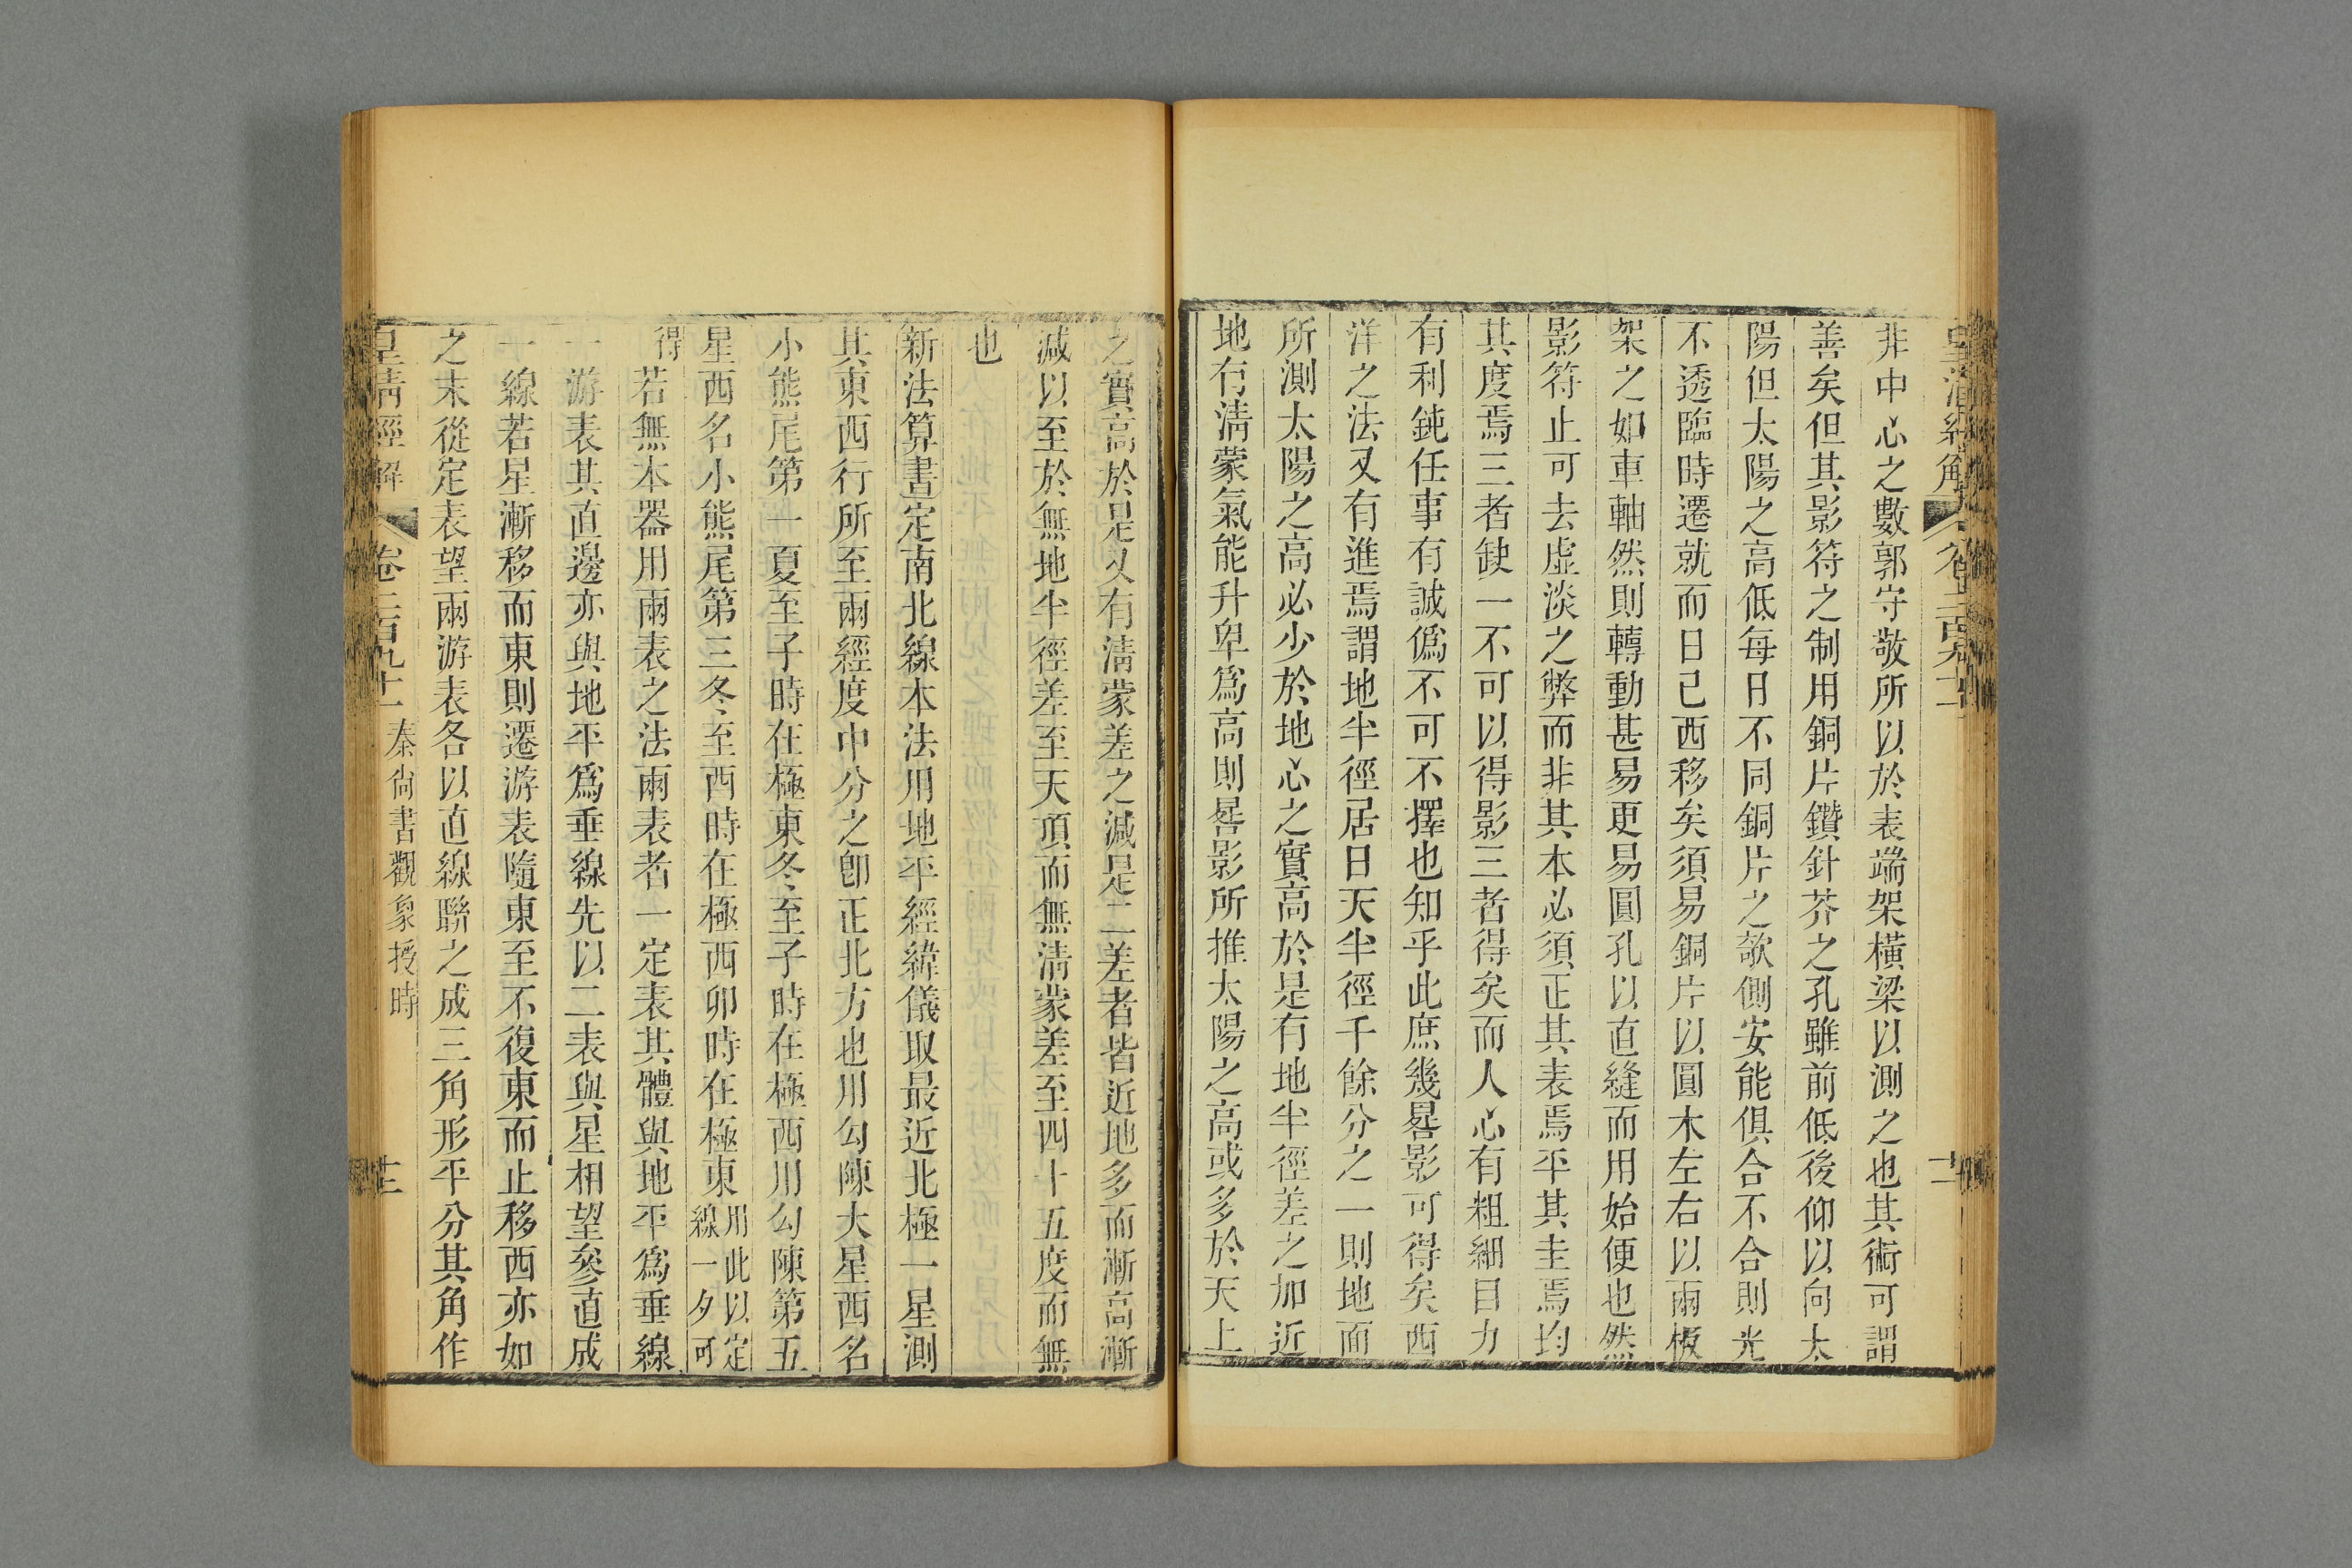 皇清經解 卷二百九十二 十二
非中心之數郭守敬所以於表端架橫梁以測之也其術可謂
善矣但其影符之制用銅片鑽針芥之孔雖前低後仰以向太
陽但太陽之高低每日不同銅片之欹側安能俱合不合則光
不透臨時遷就而日已西移矣須易銅片以圓木左右以兩板
架之如車軸然則轉動甚易更易圓孔以直縫而用始便也然
影符止可去虛淡之弊而非其本必須正其表焉平其圭焉均
其度焉三者缺一不可以得影三者得矣而人心有粗細目力
有利鈍任事有誠偽不可不擇也知乎此庶幾晷影可得矣西
洋之法又有進焉謂地半徑居日天半徑千餘分之一則地面
所測太陽之高必少於地心之實高於是有地半徑差之加近
地有清蒙氣能升卑為高則晷影所推太陽之高或多於天上
之實高於是又有清蒙差之減是二差者皆近地多而漸高漸
減以至於無地半徑差至天頂而無清蒙差至四十五度而無
也
新法算書定南北線本法用地平經緯儀取最近北極一星測
其東西行所至兩經度中分之卽正北方也用勾陳大星西名
小熊尾第一夏至子時在極東冬至子時在極西用勾陳第五
星西名小熊尾第三冬至酉時在極西卯時在極東用此以定線一夕可
得
若無本器用兩表之法兩表者一定表其體與地平為垂線
一游表其直邊亦與地平為垂線先以二表與星相望參直成
一線若星漸移而東則遷游表隨東至不復東而止移西亦如
之末從定表望兩游表各以直線聯之成三角形平分其角作
皇清經解 卷二百九十二 秦尚書觀象授時 十三